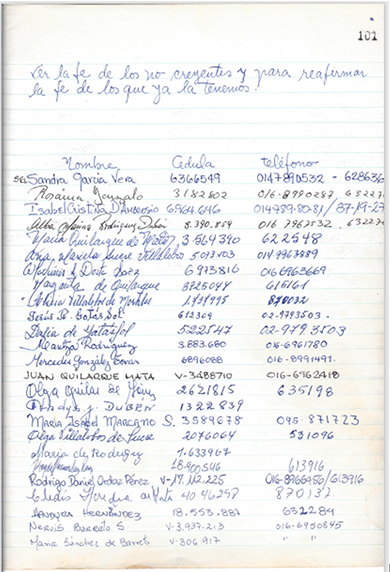 101
ver la fe de los no creyentes y para reafirmar
la fe de los que ya la tenemos.
Nombre Cedula teléfono
Sandra Garcia Vera 6366549 0147890532 - 628636
3182802 016-8990287
Isabel Cristina D'Ambrosio 6964.646 014789-80-81 / 37-19-27
Rodriguez 8.390.859 016 7962532
Maria Quilarque de 3564390 622548
5093503 0149963889
6973816 0166963669
de Quilarque 3725047 615161
Villalobos de Morales 1.737995 870032
Jesús R. Cotas Sol 612309 02-9793503.
Dalia de 522547 02-979 3503
Maritza Rodríguez 3.883.680 016-6961780
Mercedes González Tovar 6896088 016-8991497.
JUAN QUILARQUE MATA V-3485710 016-6562418
Olga Quilar de 2621815 635198
DUBEN 1322839
Maria Isabel Maragno S. 3589678 095 871723
Olga Villalobo de Sucre 2076064 531096
Maria de Rodriguez 1.633967
18.900.546 613916
Rodrigo Daniel Ordaz Pérez V-17.112.225 016-8766956/613916
4046298 870132
HERNÁNDEZ 18.553.887 632284
Nervis Barreto S. V-3.937.213 016-6950845
Maria Sánchez de Barreto V-306.917 " "